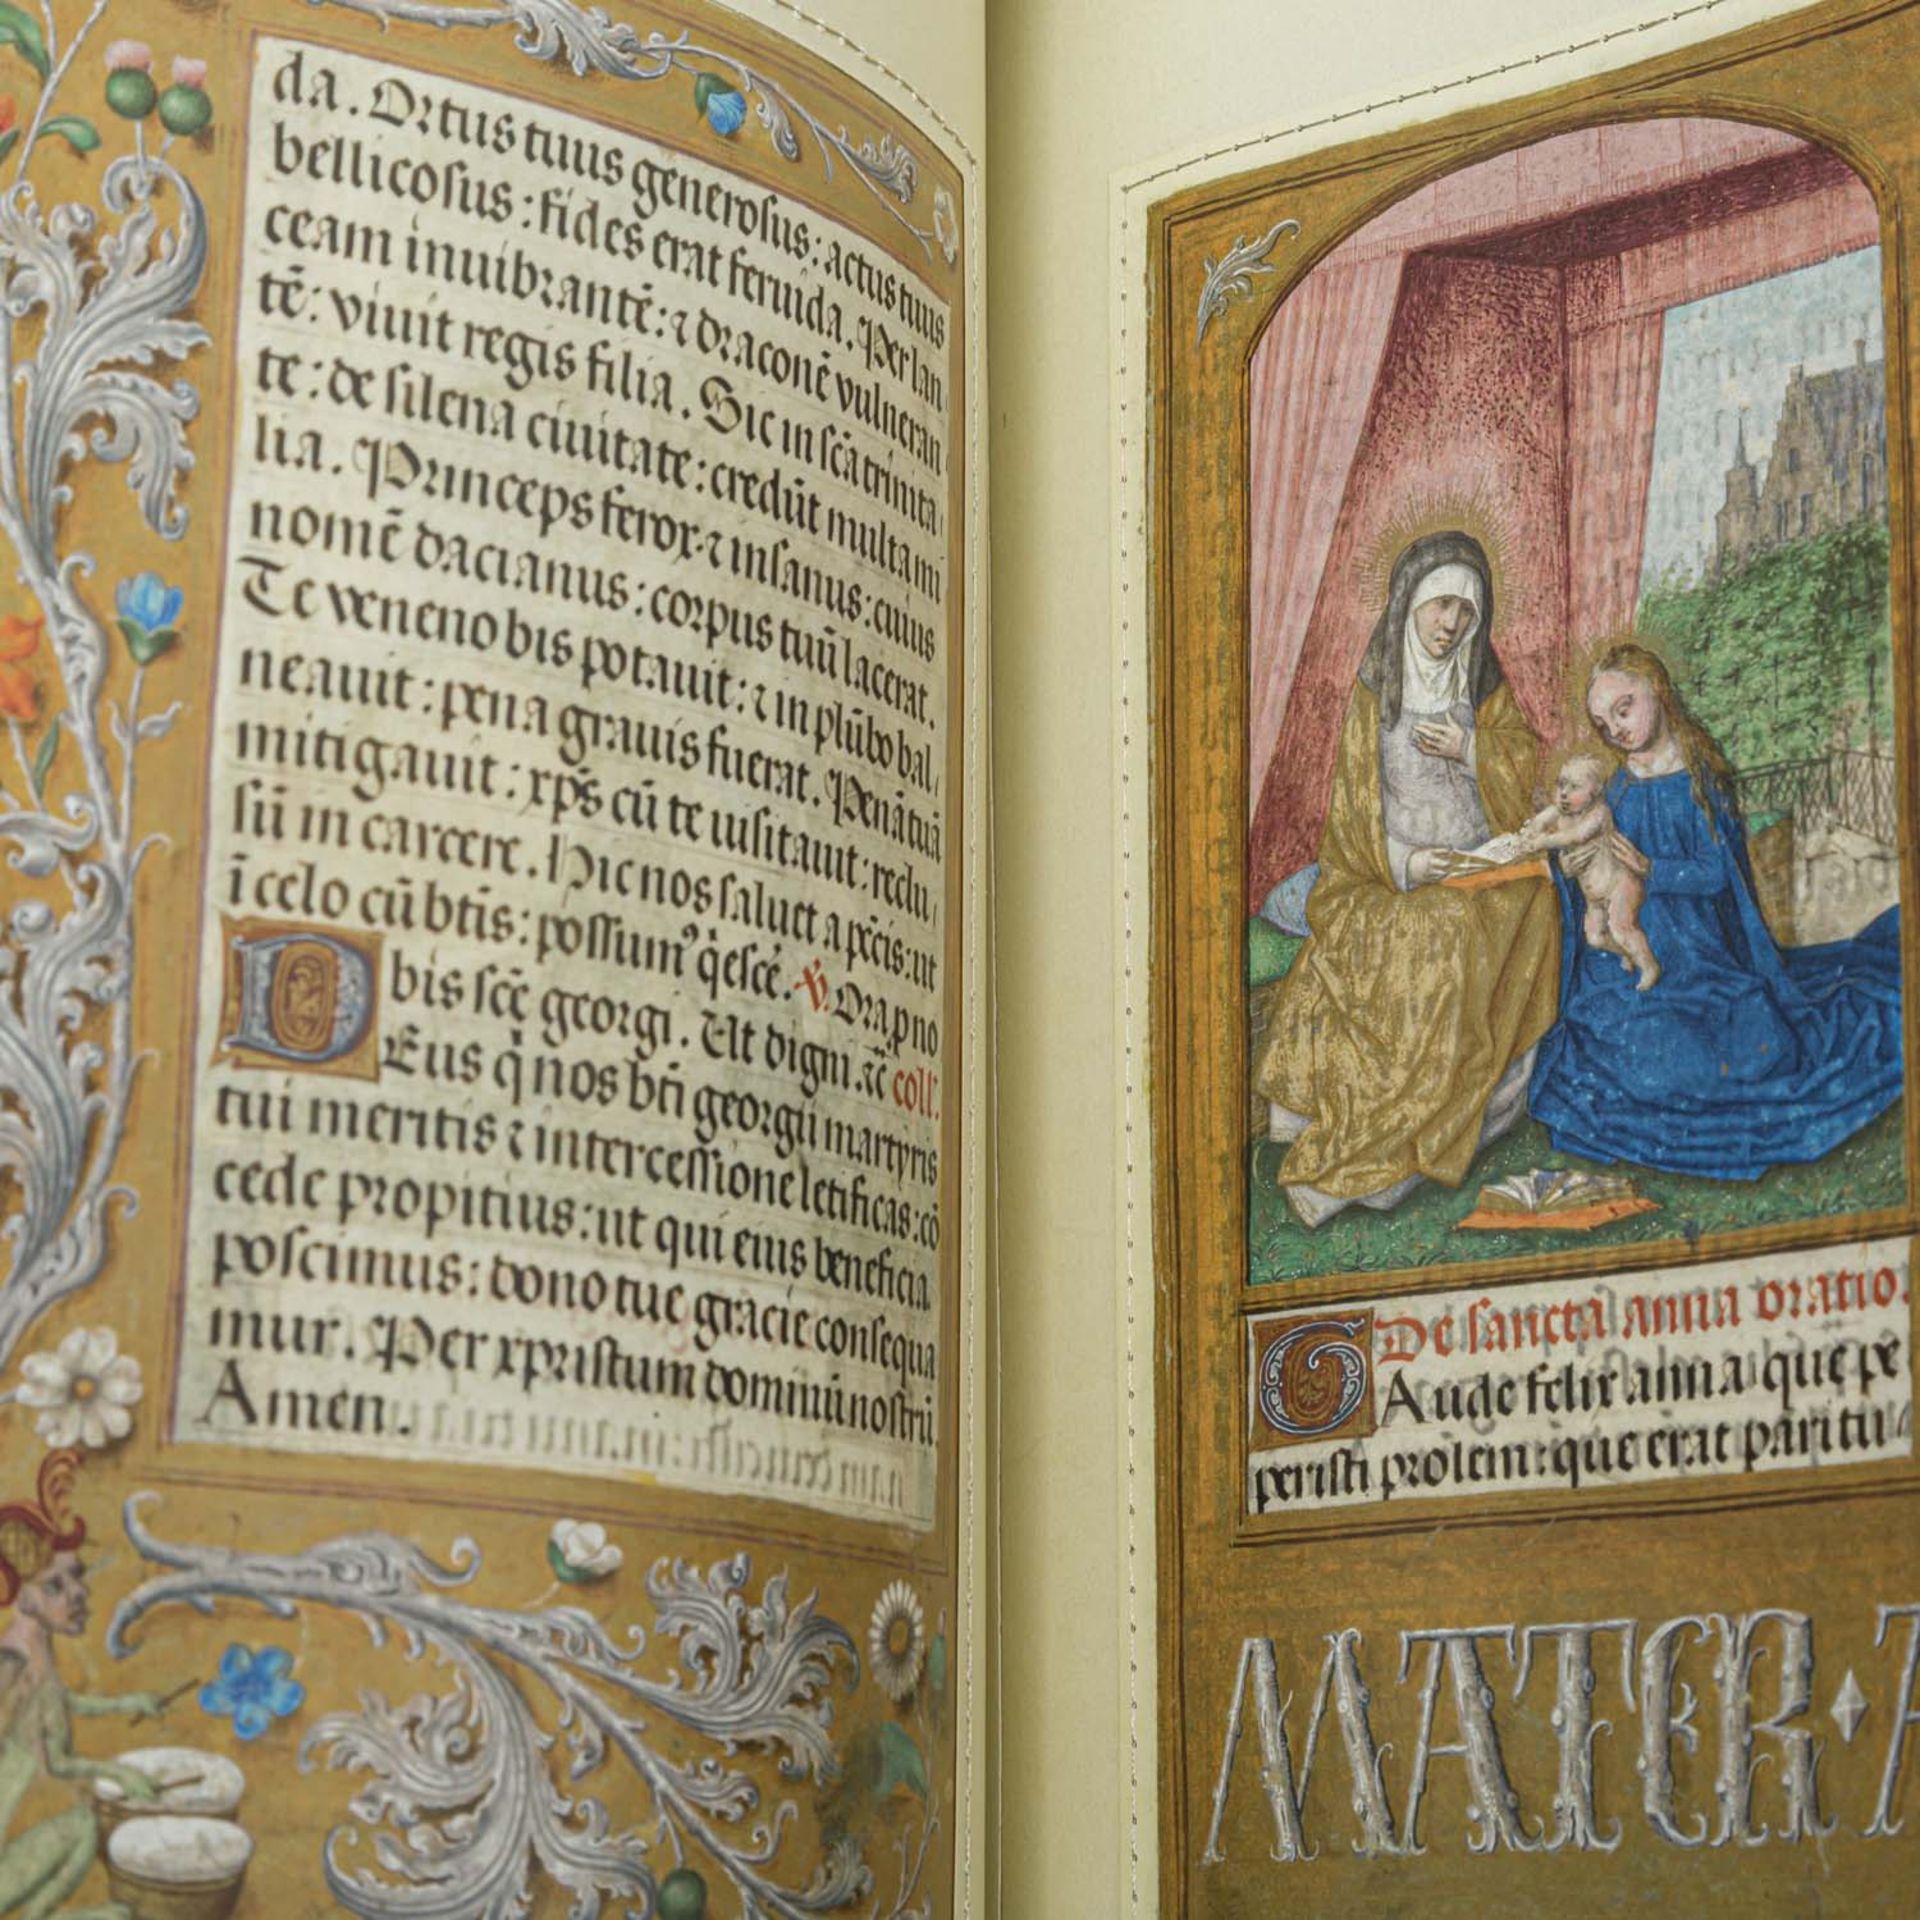 da. Ortus tuus generosus: actus tuus
bellicosus: fides erat feruida. Per lan
ceam inuibrantē: ⁊ draconē vulneran
tē: viuit regis filia. Sic in scā trinita
te: de silena ciuitate: credūt multa mi
lia. Princeps ferox ⁊ insanus: cuius
nomē dacianus: corpus tuū lacerat.
Te veneno bis potauit: ⁊ in plūbo bal
neauit: pena grauis fuerat. Penā tuā
mitigauit: xp̄s cū te uisitauit: reclu
sū in carcere. Hic nos saluet a p̄cis: ut
ī celo cū bt̄is: possumꝰ q̇escē. ℣. Ora p no
bis scē georgi. Ut digni. ⁊c̄ coll'.
DEus q̇ nos bt̄i georgii martyris
tui meritis ⁊ intercessione letificas: cō
cede propitius: ut qui eius beneficia
poscimus: dono tue gracie consequa
mur. Per xpristum dominū nostrū.
Amen.
De sancta anna oratio.
GAude felix anna que pe
peristi prolem: que erat paritu
MATER · A